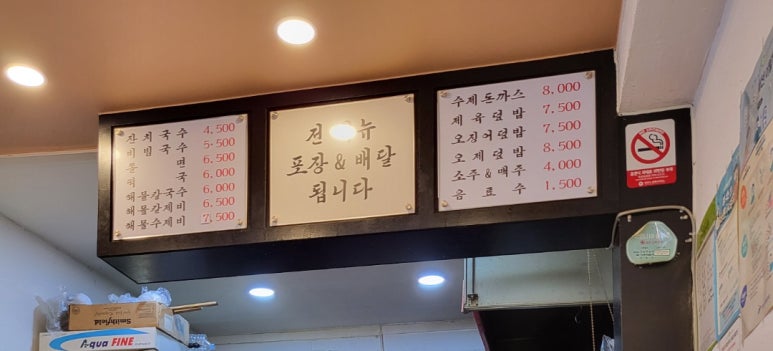 잔치국수 4,500
비빔국수 5,500
쫄면 6,500
떡국 6,000
해물칼국수 6,000
해물칼제비 6,500
해물수제비 7,500
전 메뉴
포장 & 배달
됩니다
수제돈까스 8,000
제육덮밥 7,500
오징어덮밥 7,500
오제덮밥 8,500
소주 & 맥주 4,000
음료수 1,500
Smithfield
A-qua FINE